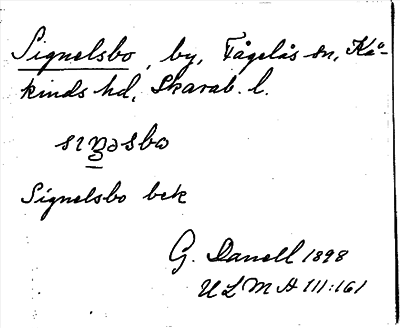 Signelsbo, by, Fågelås sn, Kå-
kinds hd, Skarab. l.
Signelsbo bek
G. Danell 1898
ULMA 111:161